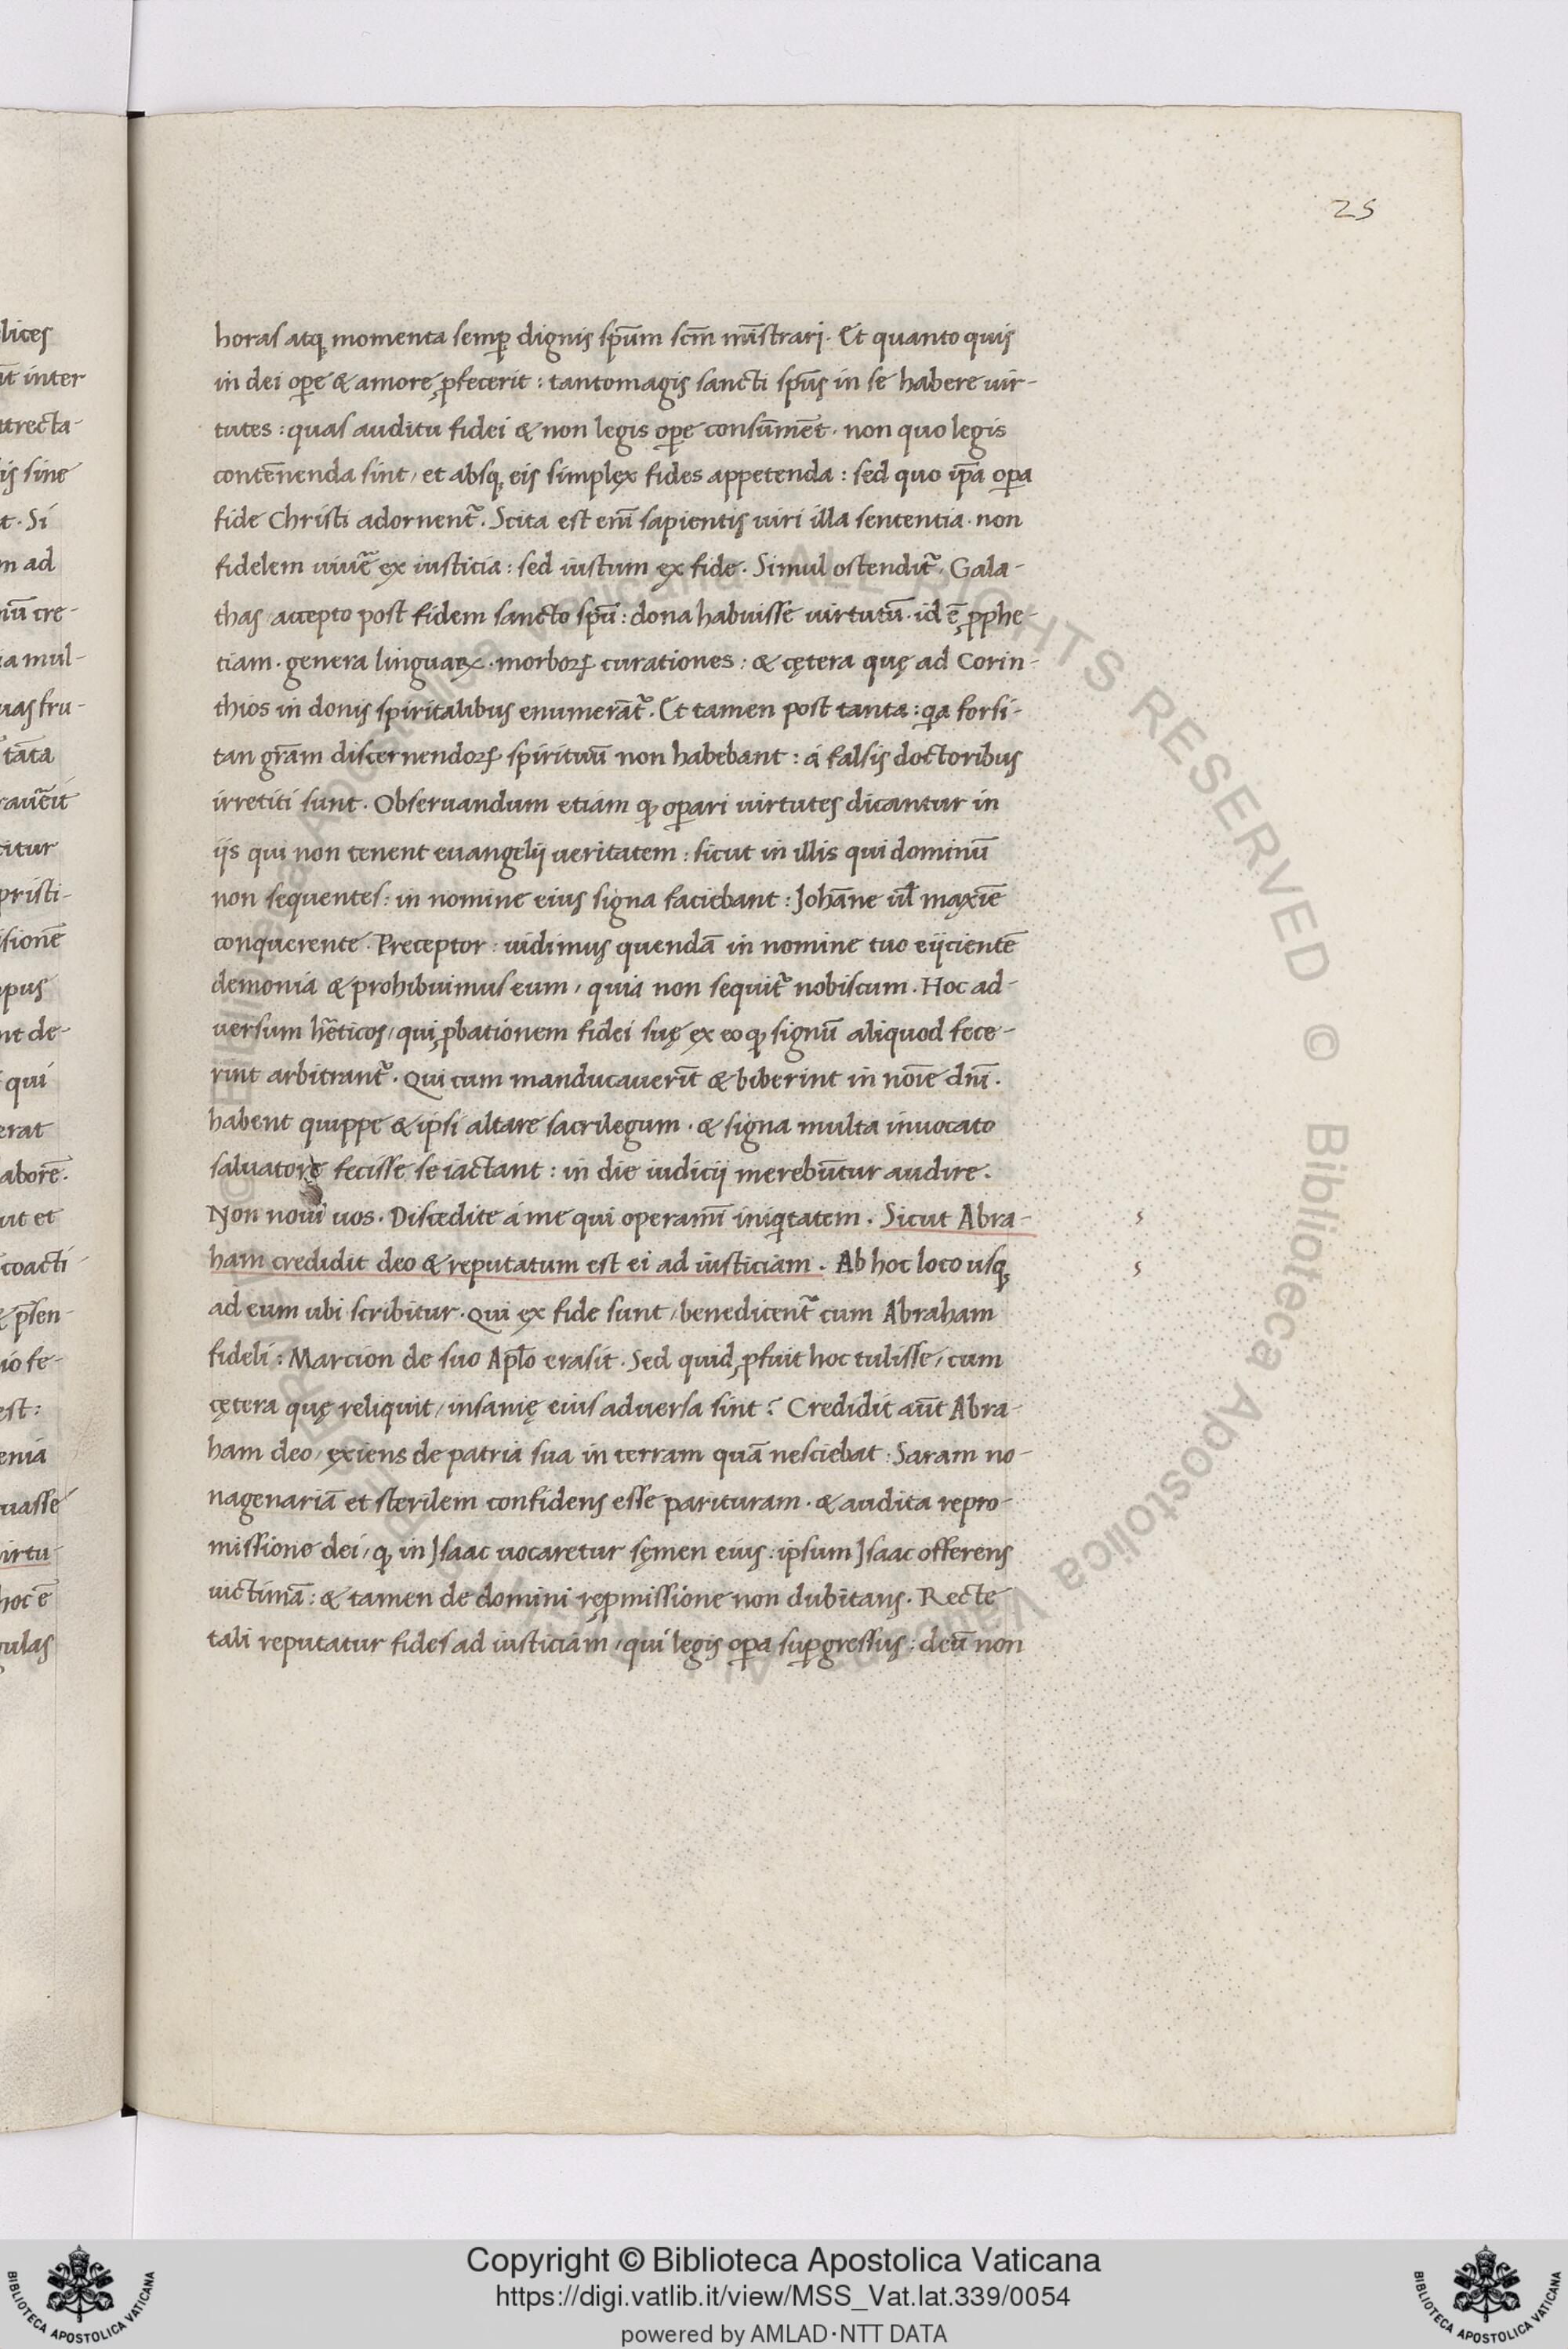 25
horas atq; momenta semꝑ dignis sp̄um scm̄ mīstrari. Et quanto quis
in dei oꝑe & amore ꝓfecerit : tantomagis sancti sp̄us in se habere uir-
tutes : quas auditu fidei & non legis oꝑe consūmēt. non quo legis
contēnenda sint, et absq; eis simplex fides appetenda : sed quo ip̄a oꝑa
fide Christi adornent᷑. Scita est enī sapientis uiri illa sententia. non
fidelem uiue᷑ ex iusticia : sed iustum ex fide. Simul ostendit᷑. Gala-
thas accepto post fidem sancto spū : dona habuisse uirtutū. id ē ꝓphe-
tiam. genera linguaꝝ. morboꝝ curationes : & cętera quę ad Corin-
thios in donis spiritalibus enumerāt᷑. Et tamen post tanta : qa forsi-
tan gr̄am discernendoꝝ spirituū non habebant : a falsis doctoribus
irretiti sunt. Obseruandum etiam ꝙ oꝑari uirtutes dicantur in
ijs qui non tenent euangelij ueritatem : sicut in illis qui dominū
non sequentes : in nomine eius signa faciebant : Johāne ul̄ maxīe
conquerente. Preceptor : uidimus quendā in nomine tuo eijcientē
demonia & prohibuimus eum, quia non sequit᷑ nobiscum. Hoc ad-
uersum hēticos, qui ꝓbationem fidei suę ex eo ꝙ signū aliquod fece-
rint arbitrant᷑. Qui cum manducauerīt & biberint in noīe dnī.
habent quippe & ipsi altare sacrilegum. & signa multa inuocato
saluatore fecisse se iactant : in die iudicij merebūtur audire.
Non noui uos. Discedite a me qui operamī iniqtatem. Sicut Abra-
ham credidit deo & reputatum est ei ad iusticiam. Ab hoc loco usq;
ad eum ubi scribitur. Qui ex fide sunt, benedicent᷑ cum Abraham
fideli : Marcion de suo Aplo̅ erasit. Sed quid ꝓfuit hoc tulisse, cum
cętera quę reliquit, insanię eius aduersa sint ? Credidit aūt Abra-
ham deo, exiens de patria sua in terram quā nesciebat : Saram no-
nagenariā et sterilem confidens esse parituram. & audita repro-
missione dei, ꝙ in Jsaac uocaretur sęmen eius : ipsum Jsaac offerens
uictimā : & tamen de domini reꝓmissione non dubitans. Recte
tali reputatur fides ad iusticiam, qui legis oꝑa suꝑgressus : deū non
Copyright © Biblioteca Apostolica Vaticana
https://digi.vatlib.it/view/MSS_Vat.lat.339/0054
powered by AMLAD·NTT DATA